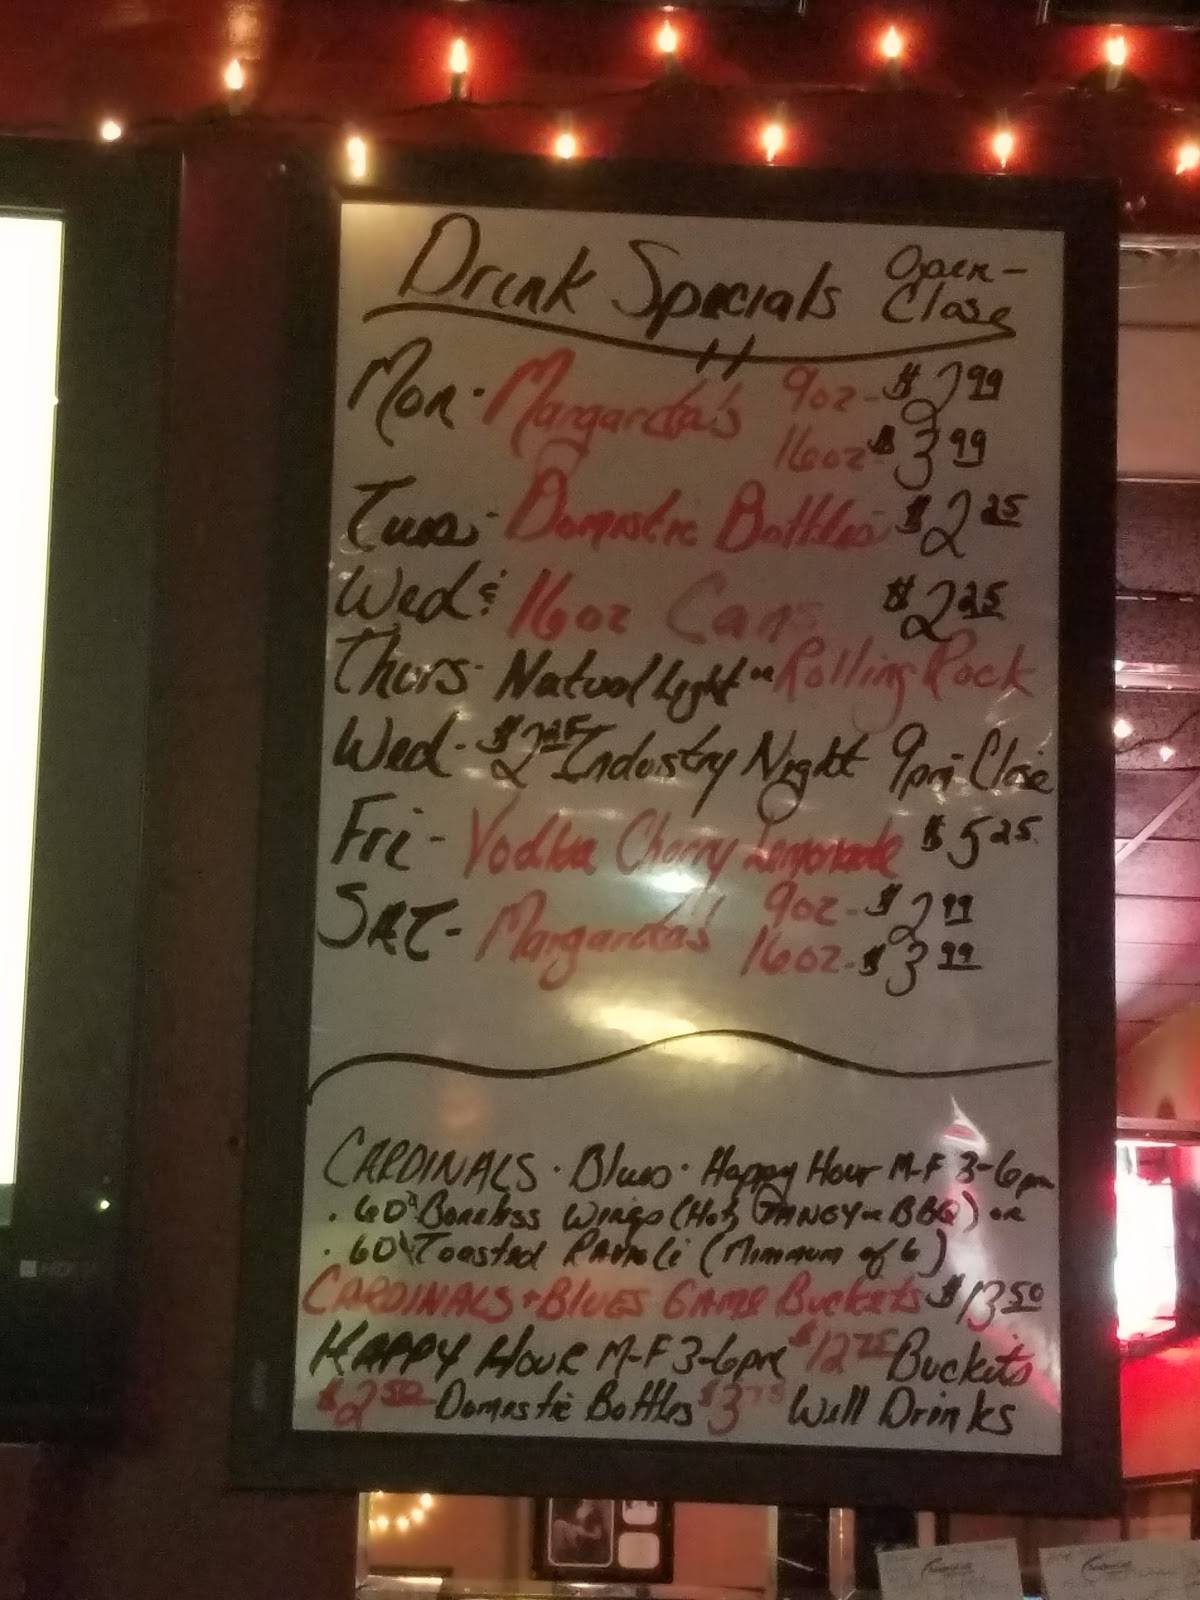 Drink Specials Open-Close
Mon - Margarita's 9oz - $2.99
16oz $3.99
Tues - Domestic Bottles $2.25
Wed & 16oz Cans $2.25
Thurs - Natural Light or Rolling Rock
Wed - $2.25 Industry Night 9pm-Close
Fri - Vodka Cherry Lemonade $5.25
SAT - Margarita's 9oz - $2.99
16oz - $3.99
CARDINALS · Blues · Happy Hour M-F 3-6pm
· 60¢ Boneless Wings (Hot, TANGY or BBQ) or
· 60¢ Toasted Ravioli (Minimum of 6)
CARDINALS + BLUES GAME Buckets $13.50
HAPPY HOUR M-F 3-6pm $12.75 Buckets
$2.50 Domestic Bottles $3.75 Well Drinks